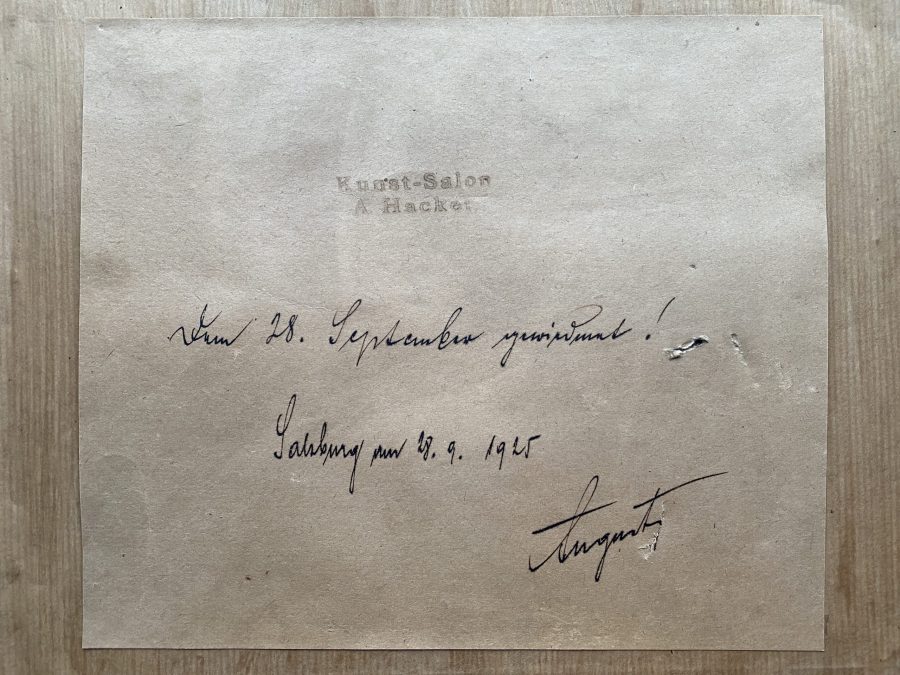 Kunst-Salon
A Hacker
Dem 28. September gewiedmet!
Salzburg am 28. 9. 1925
August